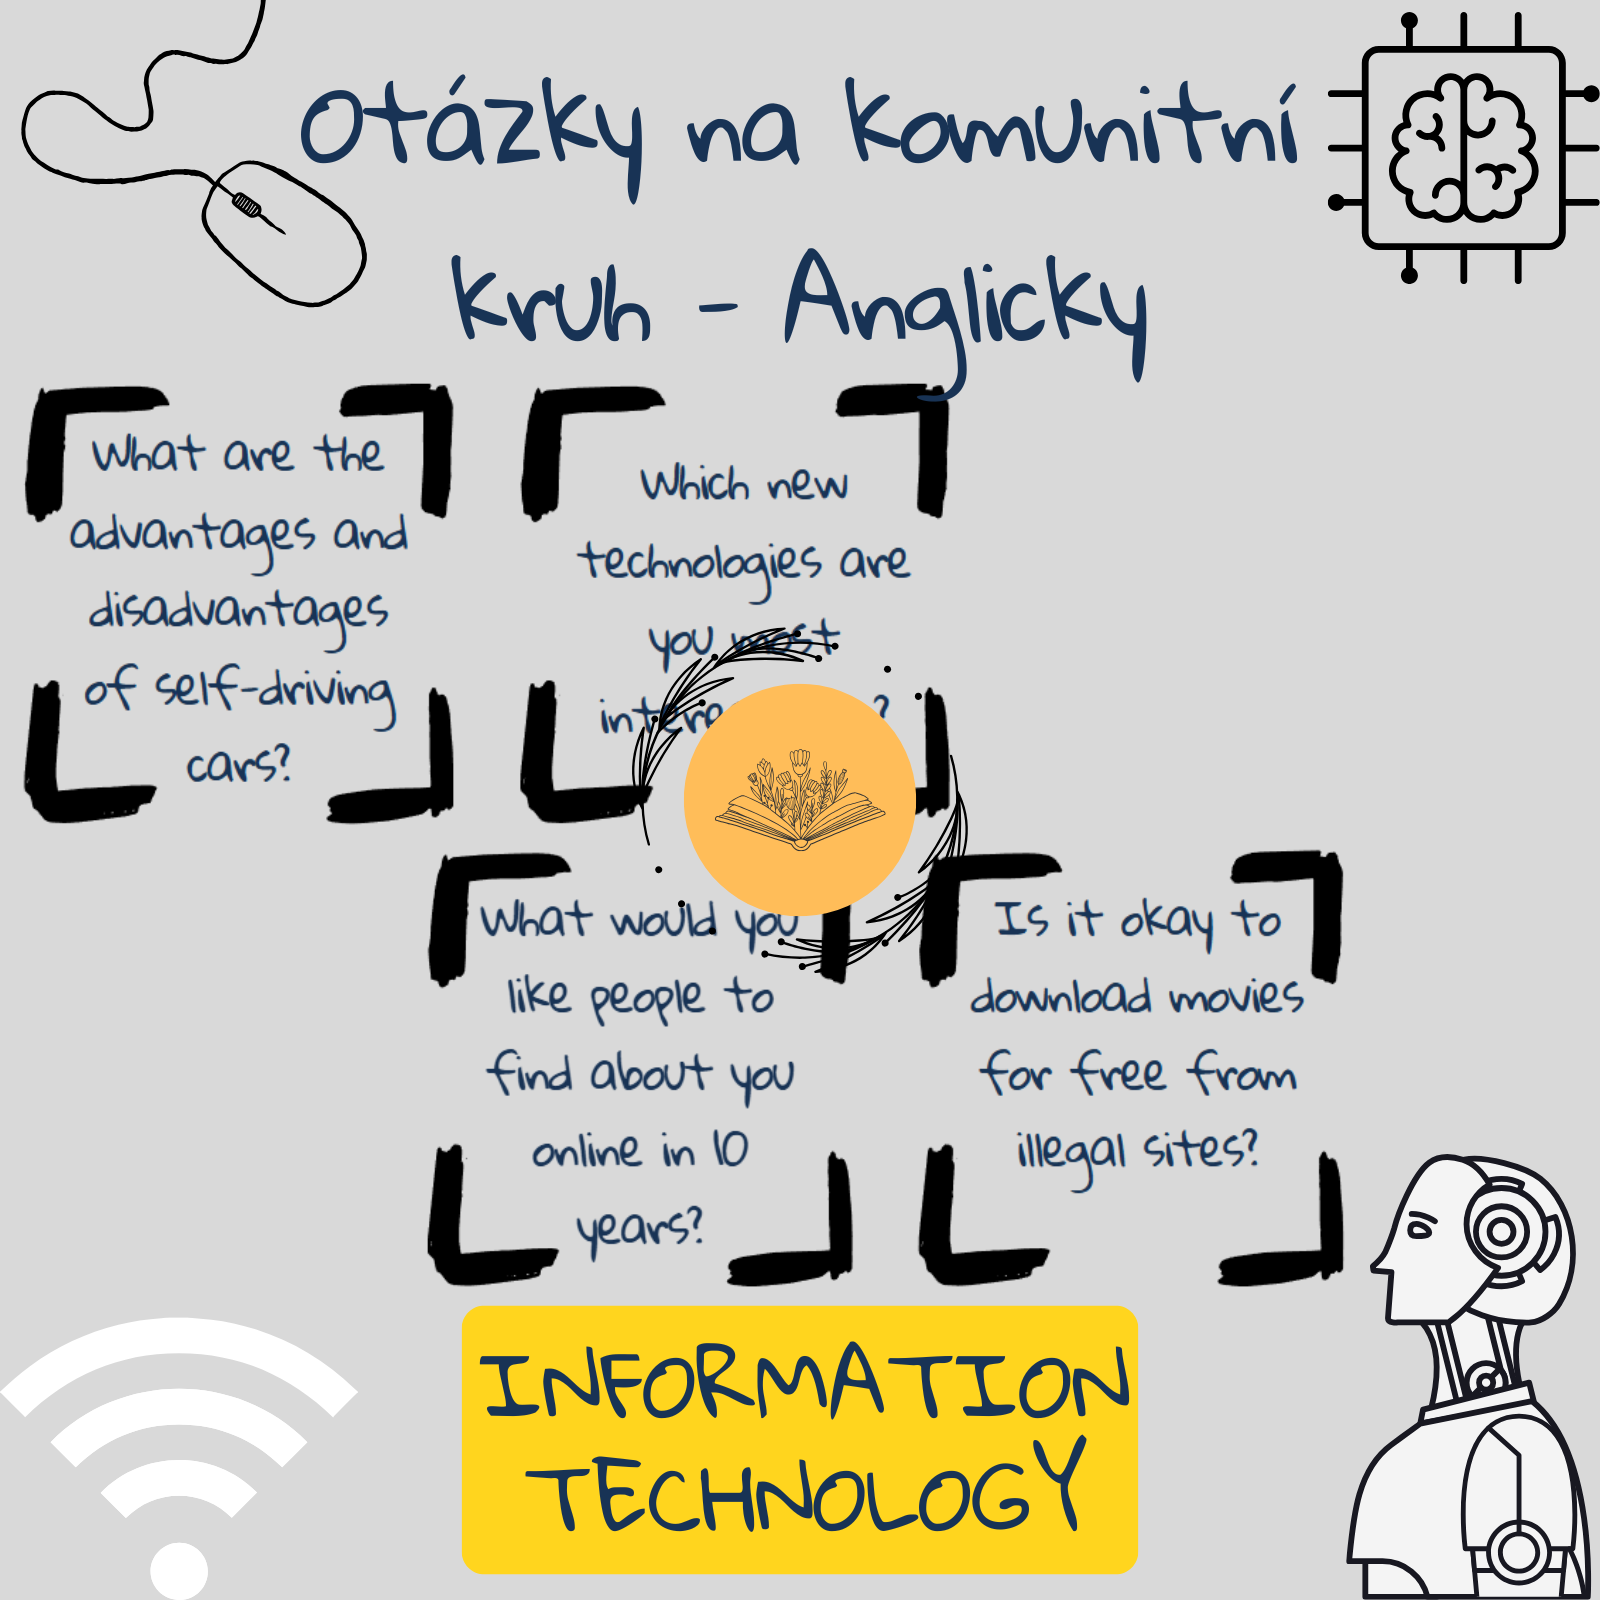 Otázky na komunitní
kruh - Anglicky
What are the
advantages and
disadvantages
of self-driving
cars?
Which new
technologies are
you most
?
What would you
like people to
find about you
online in 10
years?
Is it okay to
download movies
for free from
illegal sites?
INFORMATION
TECHNOLOGY